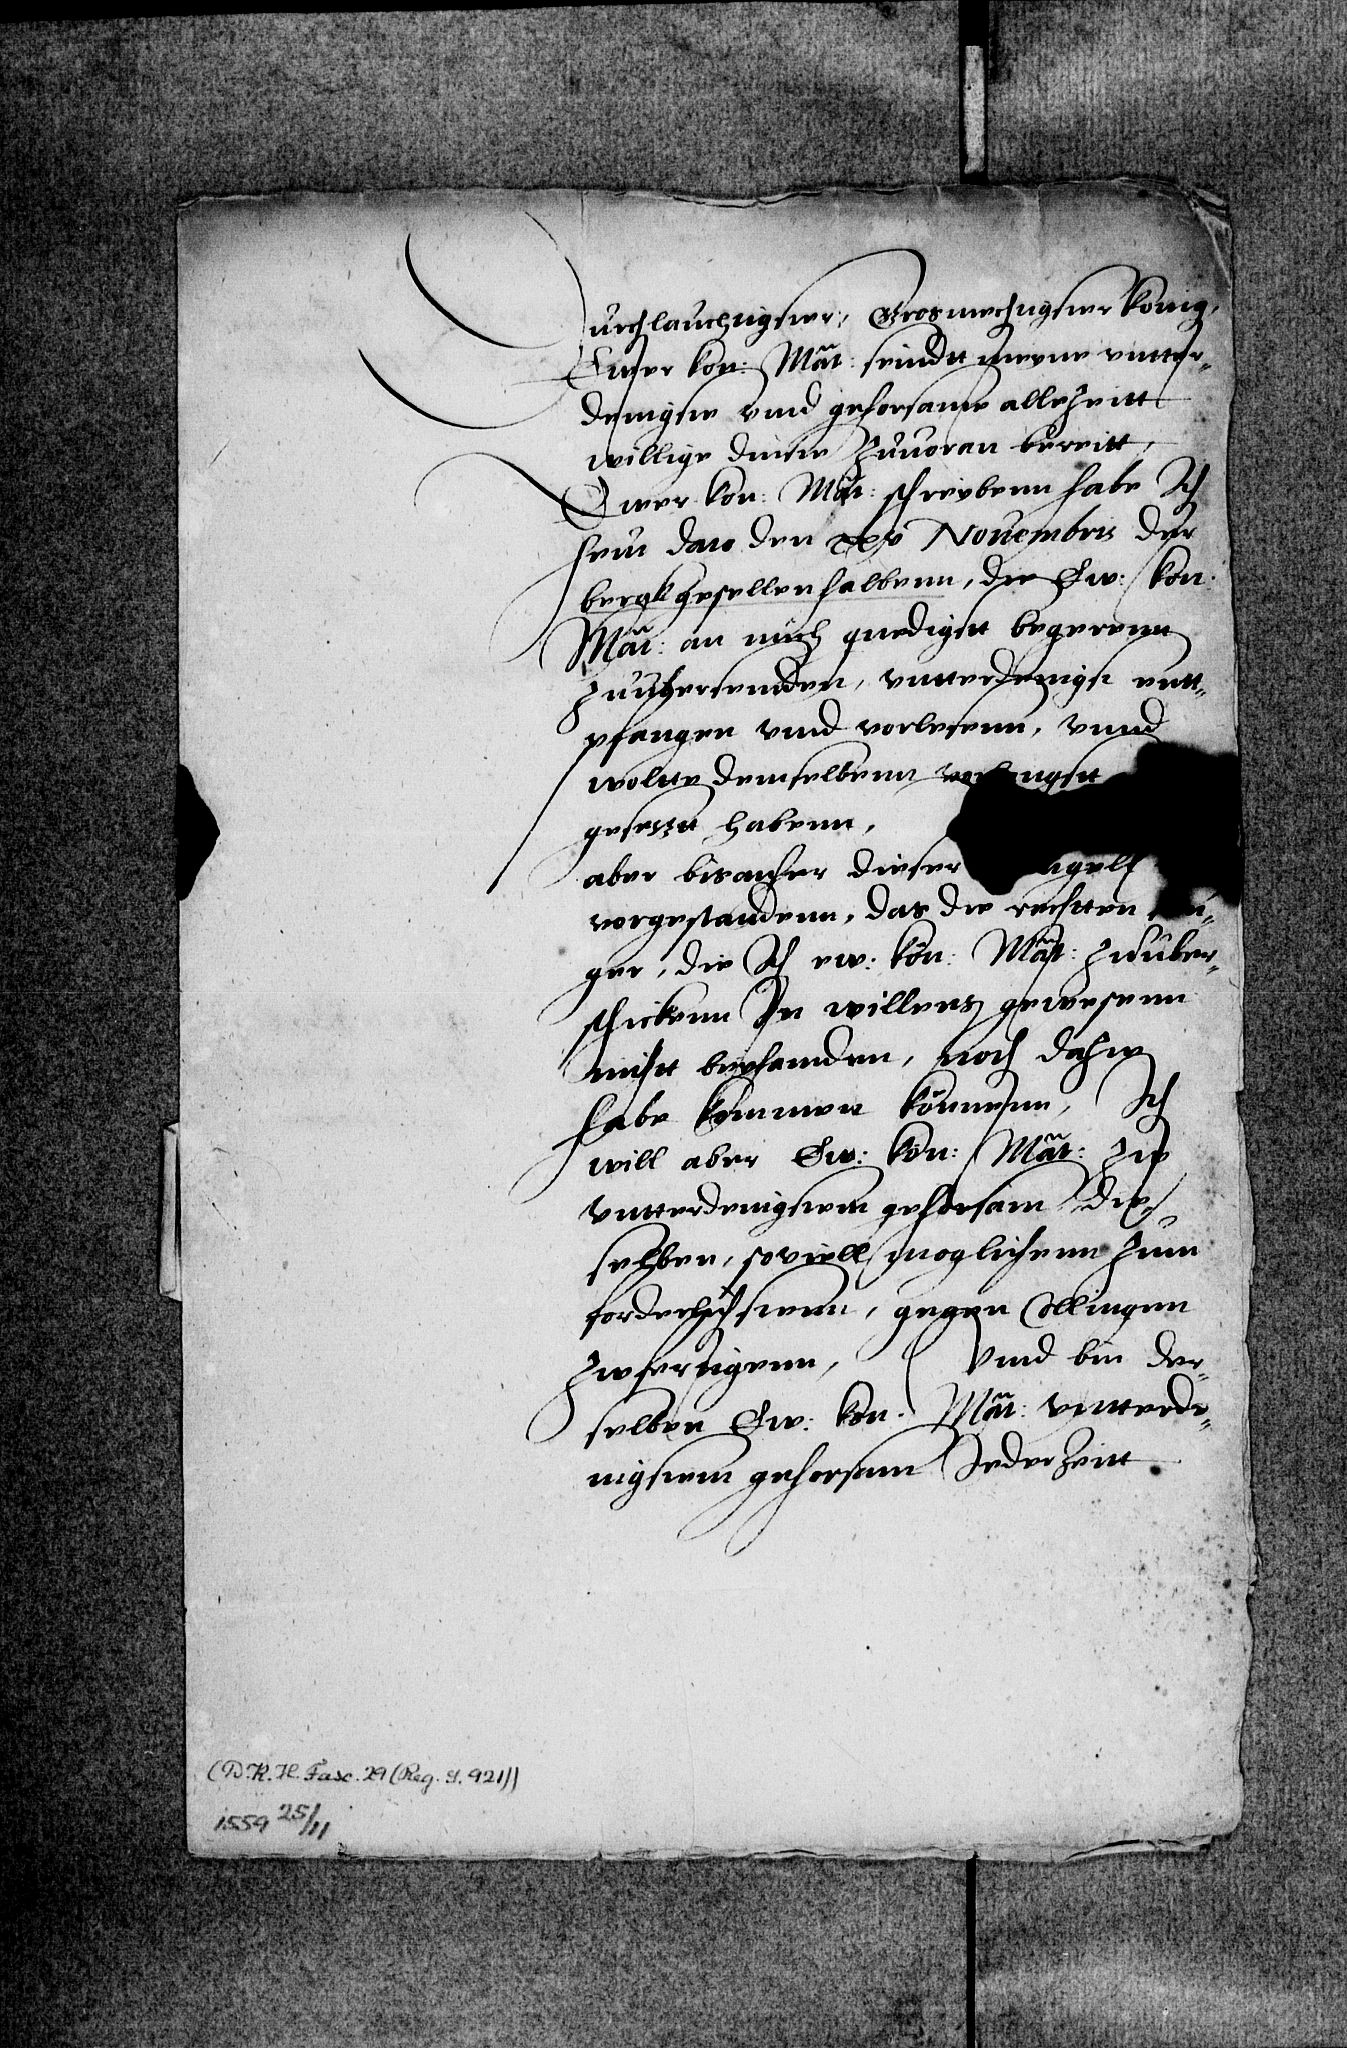 Durchlauchtigster, Grosmechtigster König,
Ewer kon: Mat: seindtt meyne vntter-
denigste vnnd gehorsame allezeitt
willige dinste zuuoran bereitt,
Ewer kon: Mat: schreybenn habe Ich
heut dato den xxv Nouembris der
bergkgesellen halbenn, die Ew: kon:
Mat: an mich gnedigst begerenn
zuuhersenden, vntterdenigst entt-
pfangen vnnd vorlesenn, vnnd
woltte demselbenn vorlengst
gesetzt habenn,
aber bisanher dieser
vorgestandenn, das die rechtten
ger, die Ich ew: kön: Mat: zuüber-
schickenn In willens gewesenn
nichtt vorhanden, noch dahie
habe kommen könnenn, Ich
will aber Ew: kön: Mat: zw
vntterdenigstem gehorsam die-
selben, soviell moglichenn zum
forderlichstenn, gegen Collingen
zwfertigenn, Vnnd bin der-
selben Ew: kon: Mat: vntterde-
nigstem gehorsam Jederzeitt
(D.K.H. Fasc. 29 (Reg. II. 921))
1559 25/11